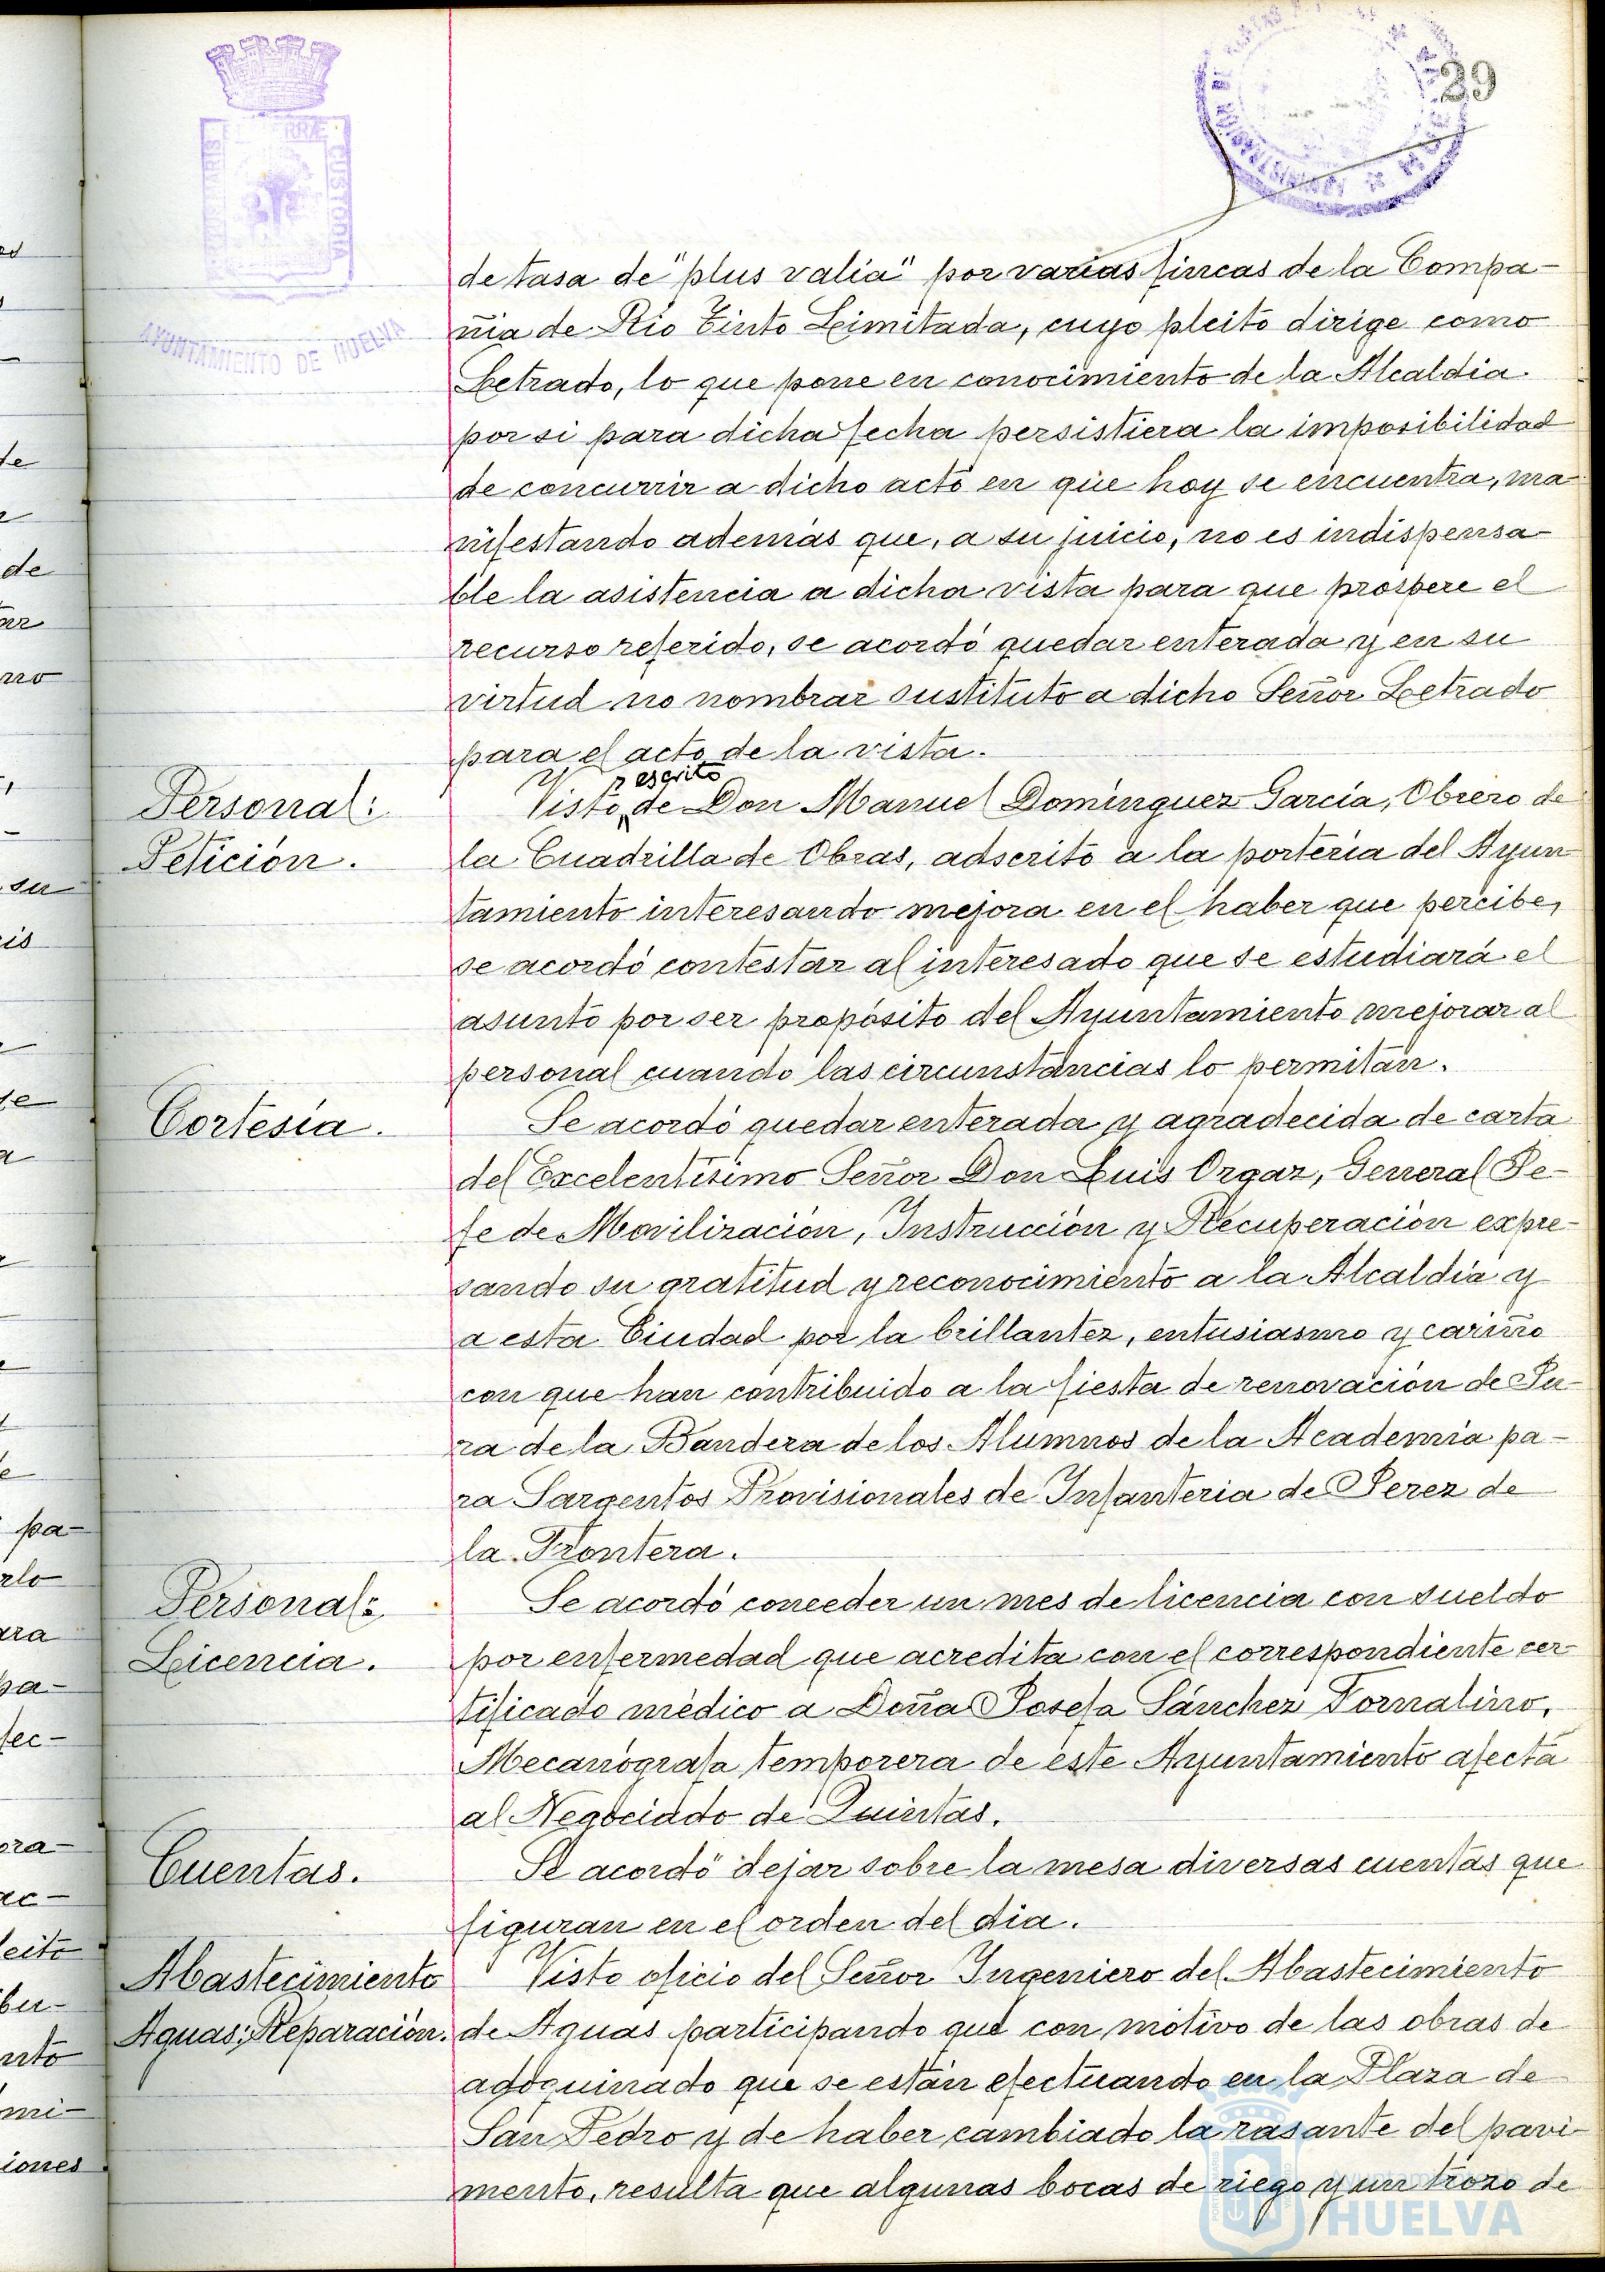 29
AYUNTAMIENTO DE HUELVA
de tasa de "plus valia" por varias fincas de la Compa-
ñia de Rio Tinto Limitada, cuyo pleito dirige como
Letrado, lo que pone en conocimiento de la Alcaldia
por si para dicha fecha persistiera la imposibilidad
de concurrir a dicho acto en que hoy se encuentra, ma-
nifestando además que, a su juicio, no es indispensa-
ble la asistencia a dicha vista para que prospere el
recurso referido, se acordó quedar enterada y en su
virtud no nombrar sustituto a dicho Señor Letrado
para el acto de la vista.
Personal:
Petición.
escrito
Visto de Don Manuel Domínguez García, Obrero de
la Cuadrilla de Obras, adscrito a la portería del Ayun-
tamiento interesando mejora en el haber que percibe,
se acordó contestar al interesado que se estudiará el
asunto por ser propósito del Ayuntamiento mejorar al
personal cuando las circunstancias lo permitan.
Cortesía.
Se acordó quedar enterada y agradecida de carta
del Excelentísimo Señor Don Luis Orgaz, General Je-
fe de Movilización, Instrucción y Recuperación expre-
sando su gratitud y reconocimiento a la Alcaldía y
a esta Ciudad por la brillantez, entusiasmo y cariño
con que han contribuido a la fiesta de renovación de Ju-
ra de la Bandera de los Alumnos de la Academia pa-
ra Sargentos Provisionales de Infanteria de Jerez de
la Frontera.
Personal:
Licencia.
Se acordó conceder un mes de licencia con sueldo
por enfermedad que acredita con el correspondiente cer-
tificado médico a Doña Josefa Sánchez Tornalino,
Mecanógrafa temporera de este Ayuntamiento afecta
al Negociado de Quintas.
Cuentas.
Se acordó dejar sobre la mesa diversas cuentas que
figuran en el orden del dia.
Abastecimiento
Aguas: Reparación.
Visto oficio del Señor Ingeniero del Abastecimiento
de Aguas participando que con motivo de las obras de
adoquinado que se están efectuando en la Plaza de
San Pedro y de haber cambiado la rasante del pavi-
mento, resulta que algunas bocas de riego y un trozo de
HUELVA